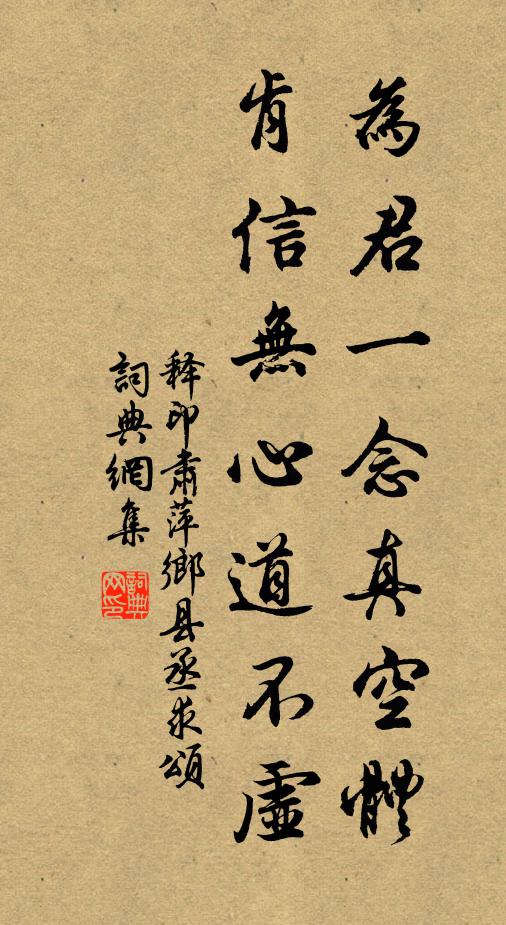 為君一念真空體
肯信無心道不虛
释印肅萍鄉县丞求頌
詞典網集
詞典网印